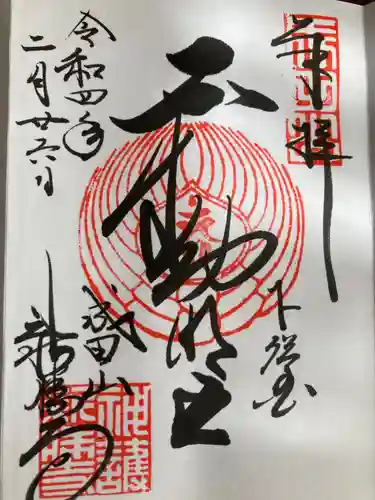 奉拝
下総国
不動明王
成田山
新勝寺
令和四年
二月廿六日